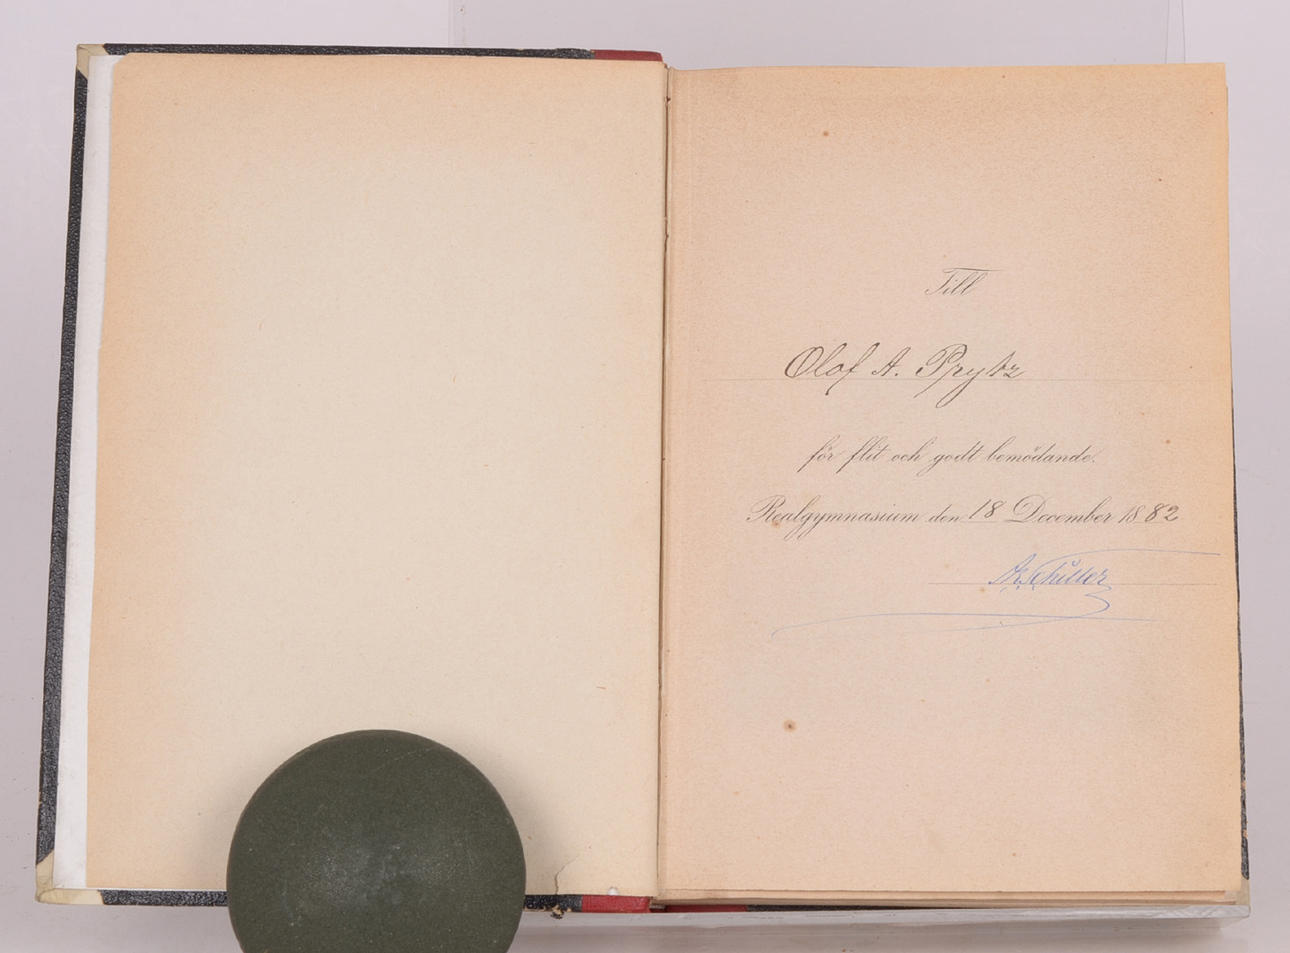 Till
Olof A. Prytz
för flit och godt bemödande.
Realgymnasium den 18 December 1882
Schiller